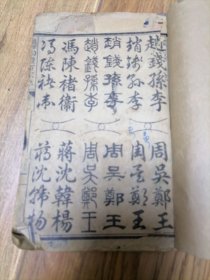 趙錢孫李 周吳鄭王
趙錢孫李 周吳鄭王
趙錢孫李 周吳鄭王
趙錢孫李 周吳鄭王
馮陳褚衛 蔣沈韓楊
馮陳褚衛 蔣沈韓楊